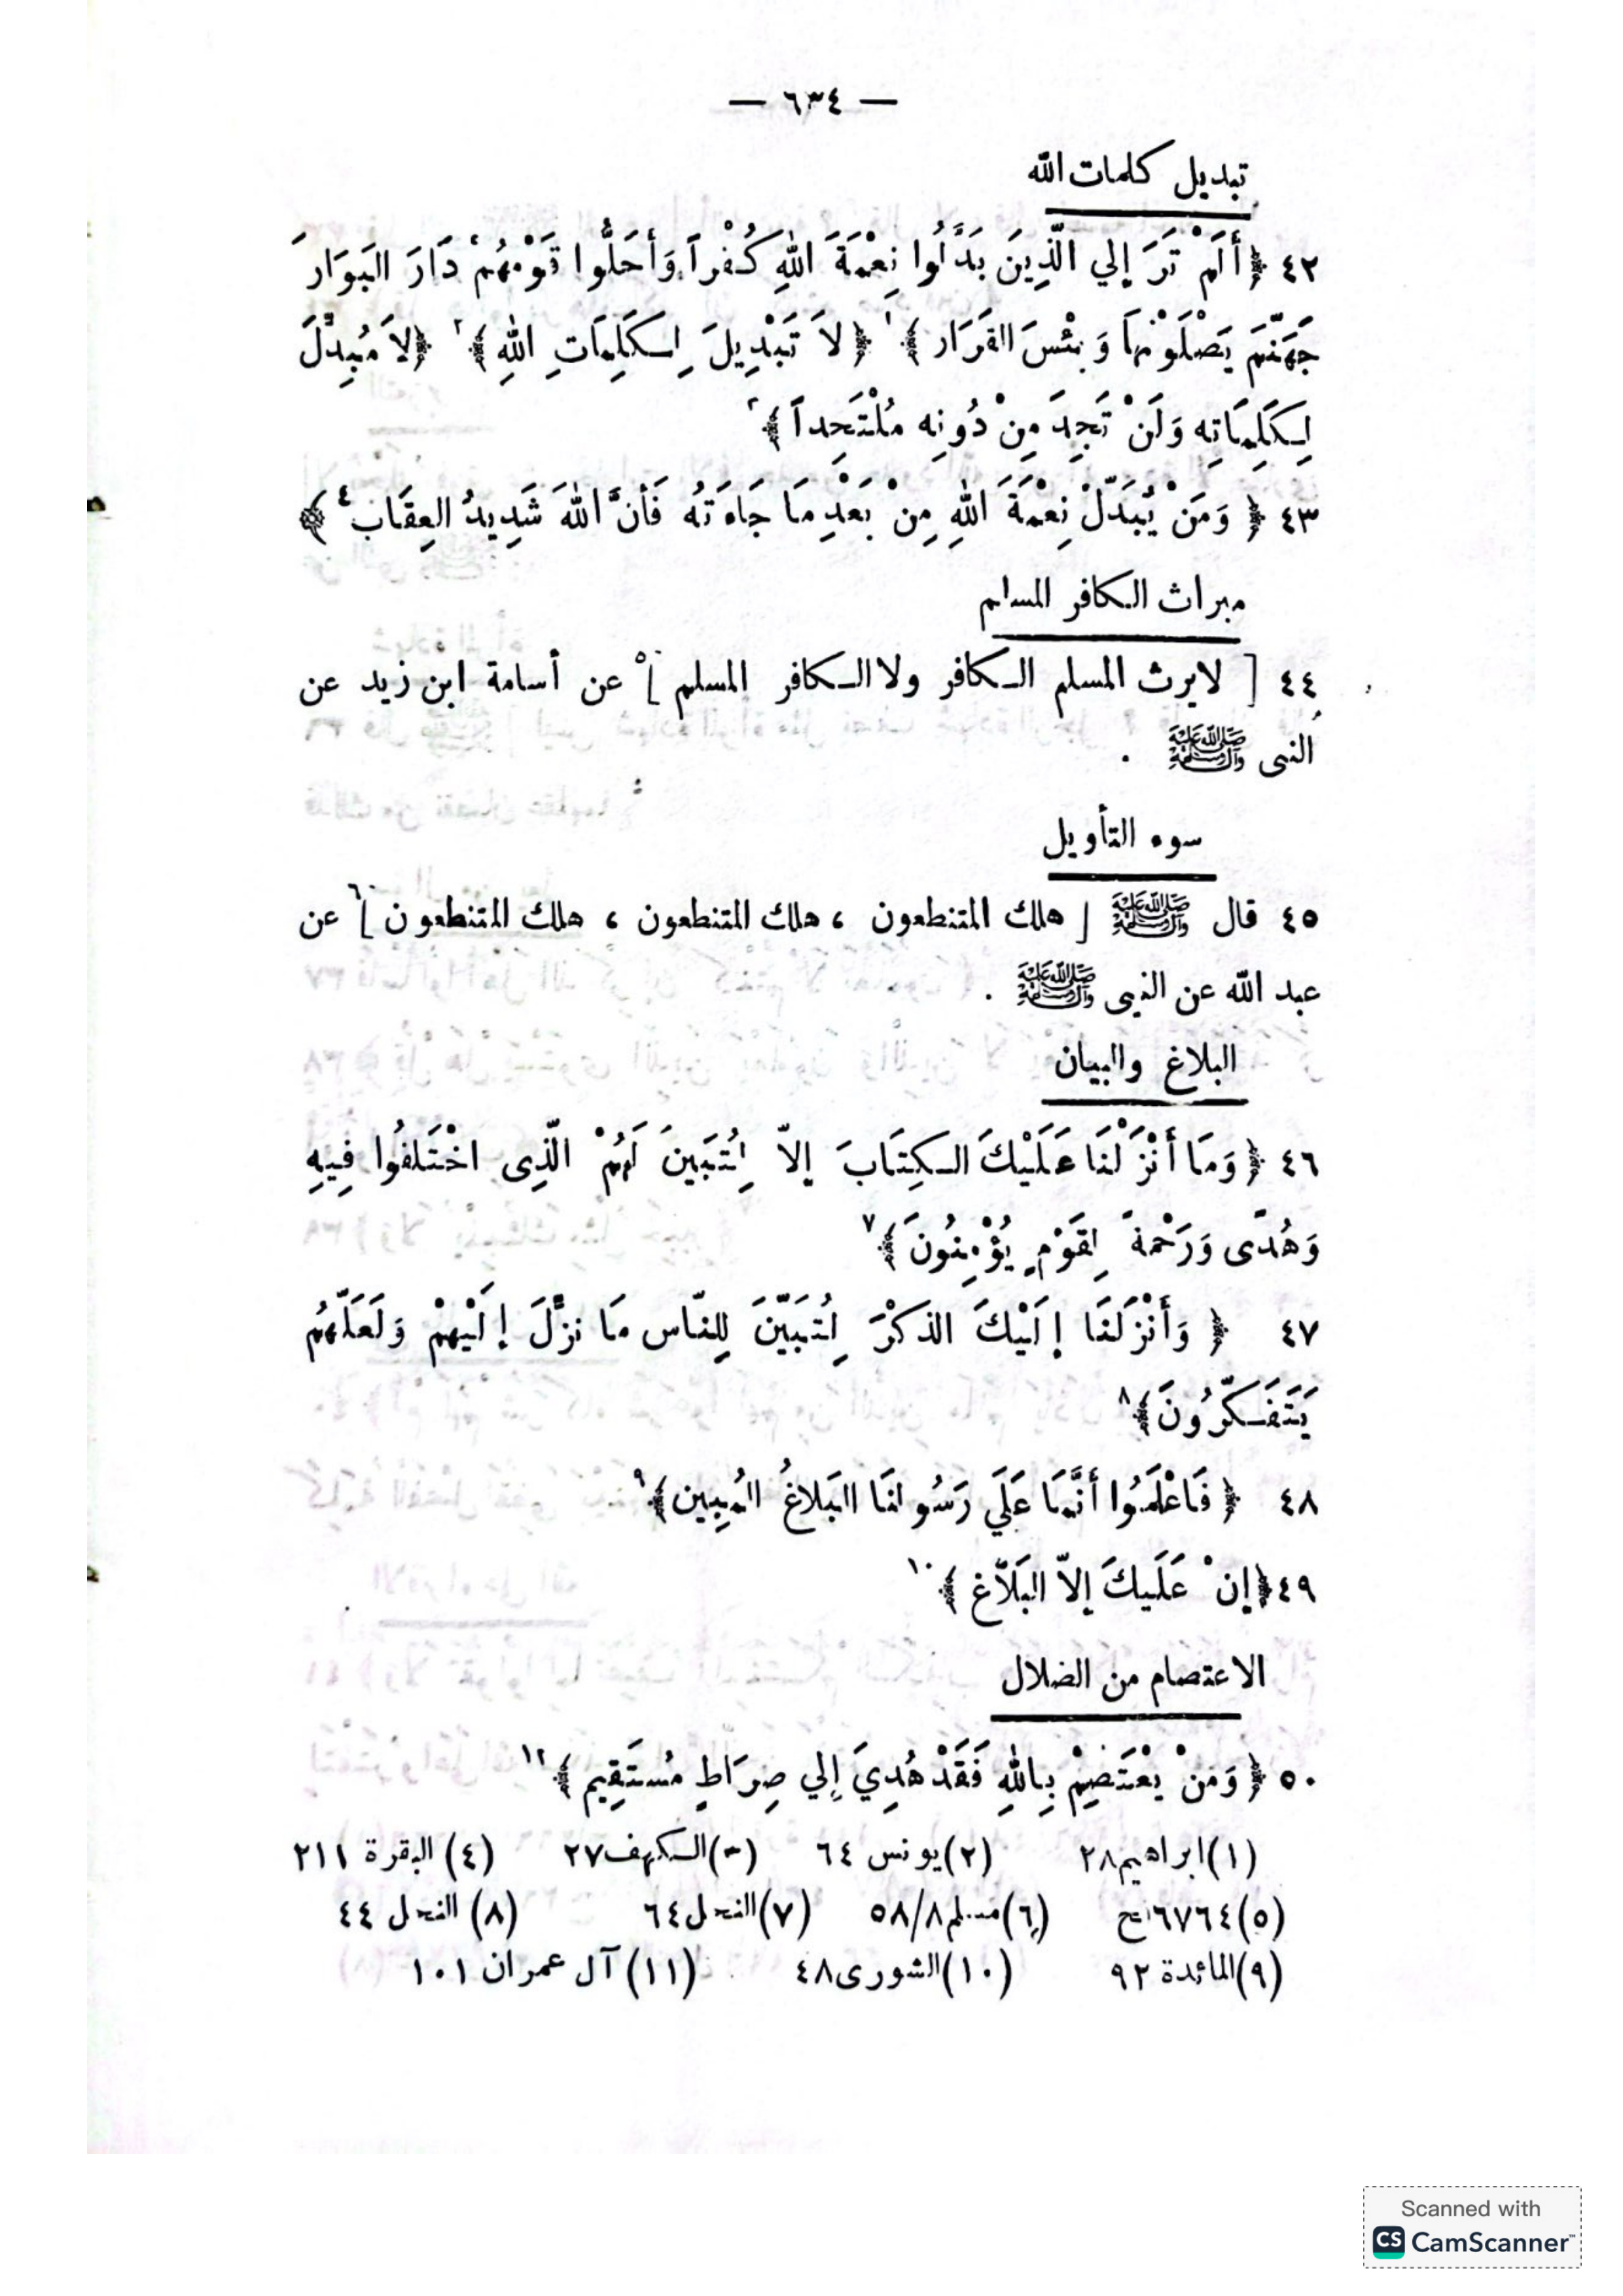 — ٦٣٤ —
تبديل كلمات الله
٤٢ ﴿ أَلَمْ تَرَ إلي الَّذِينَ بَدَّلُوا نِعْمَةَ اللهِ كُفْراً وَأَحَلُّوا قَوْمَهُمْ دَارَ البَوَارَ
جَهَنَّمَ يَصْلَوْنَهَا وَبِئْسَ القَرَار ﴾١ ﴿ لاَ تَبْدِيلَ لِكَلِمَاتِ اللهِ ﴾٢ ﴿ لاَ مُبدِّلَ
لِكَلِمَاتِه وَلَنْ تَجِدَ مِنْ دُونِه مُلْتَحِداً ﴾٣
٤٣ ﴿ وَمَنْ يُبَدّلْ نِعْمَةَ اللهِ مِنْ بَعْدِ مَا جَاءَتهُ فَأنَّ اللهَ شَدِيدُ العِقَاب٤ ﴾
ميراث الكافر المسلم
٤٤ [ لايرث المسلم الكافر ولا الكافر المسلم ]٥ عن أسامة ابن زيد عن
النبى ﷺ .
سوء التأويل
٤٥ قال ﷺ [ هلك المتنطعون ، هلك المتنطعون ، هلك المتنطعون ]٦ عن
عبد الله عن النبى ﷺ .
البلاغ والبيان
٤٦ ﴿ وَمَا أَنْزَلْنَا عَلَيْكَ الكِتَابَ إلاّ لِتُبَيِنَ لَهُمْ الّذِى اخْتَلفُوا فِيهِ
وَهُدًى وَرَحْمَةً لِقَوْمٍ يُؤْمِنُونَ ﴾٧
٤٧ ﴿ وَأَنْزَلنَا إلَيْكَ الذكْرَ لِتُبَيّنَ لِلنّاس مَا نزَّلَ إلَيْهِمْ وَلَعَلّهُمُ
يَتَفَكّرُونَ ﴾٨
٤٨ ﴿ فَاعْلَمُوا أَنَّمَا عَلَي رَسُولنَا البَلاغُ المُبِين ﴾٩
٤٩ ﴿ إنْ عَلَيكَ إلاّ البَلَاّغ ﴾١٠
الاعتصام من الضلال
٥٠ ﴿ وَمَنْ يَعْتَصِمْ بِاللهِ فَقَدْ هُدِيَ إلي صِرَاطٍ مُستَقِيم ﴾١٢
(١) ابراهيم ٢٨ (٢) يونس ٦٤ (٣) الكهف ٢٧ (٤) البقرة ٢١١
(٥) ٦٧٦٤ فتح (٦) مسلم ٥٨/٨ (٧) النحل ٦٤ (٨) النحل ٤٤
(٩) المائدة ٩٢ (١٠) الشورى ٤٨ (١١) آل عمران ١٠١
Scanned with
CS CamScanner